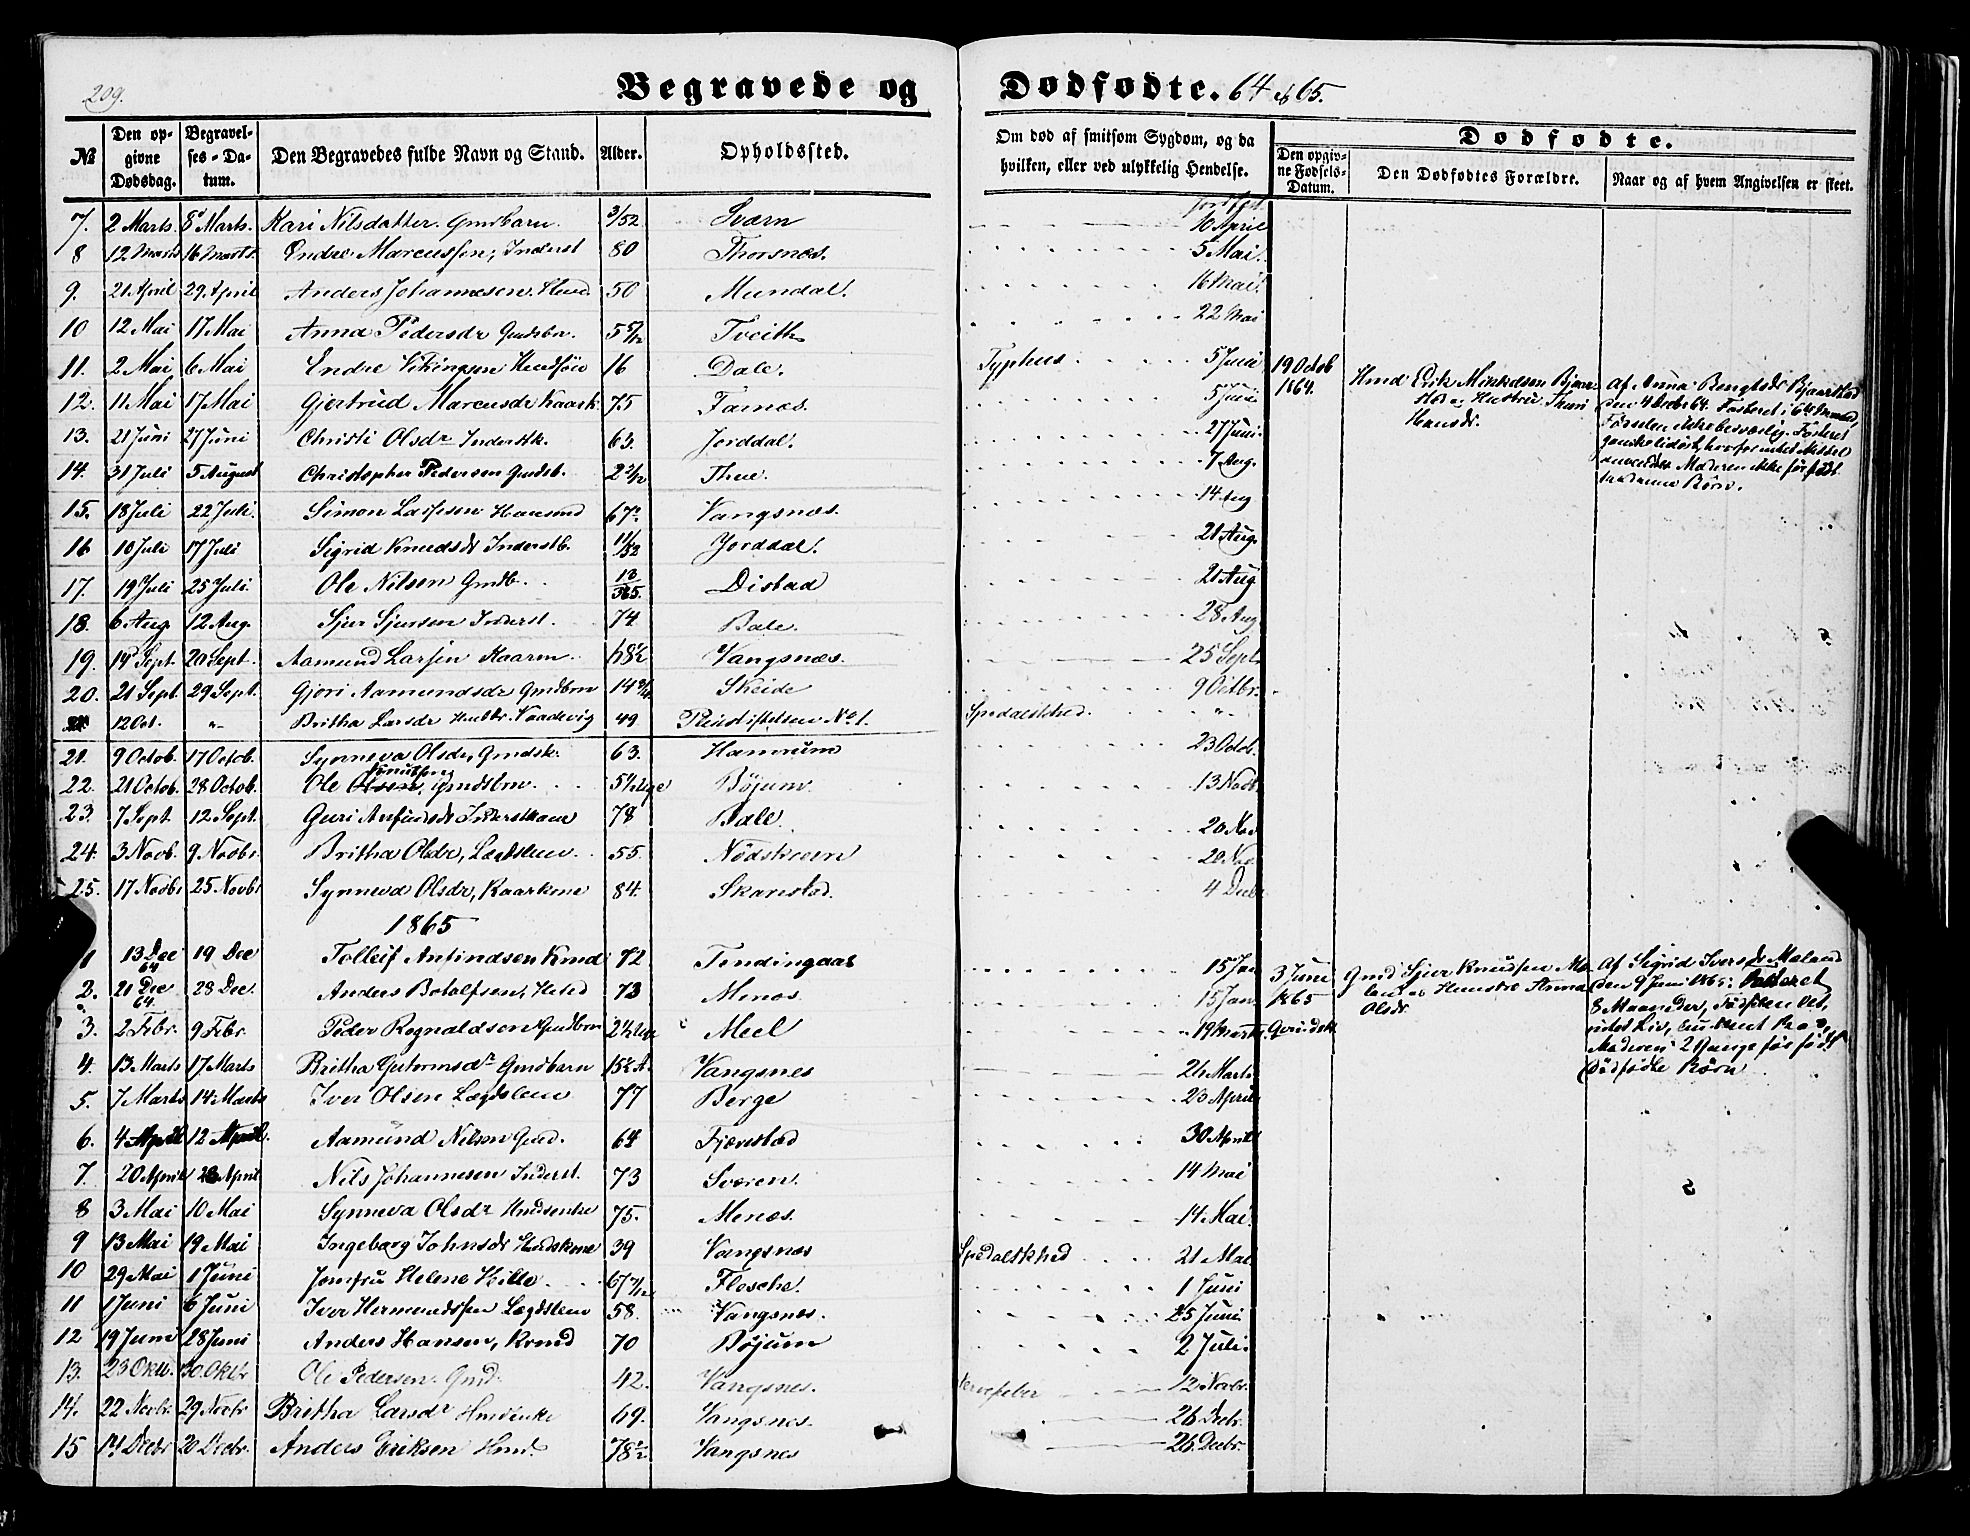 209.
Begravede og Dødfødte. 64 & 65.
№ Den opgivne Dødsdag. Begravelses-Datum. Den Begravedes fulde Navn og Stand. Alder. Opholdssted. Om død af smitsom Sygdom, og da hvilken, eller ved ulykkelig Hendelse. Dødfødte.
Den opgivne Fødsels-Datum. Den Dødfødtes Forældre. Naar og af hvem Angivelsen er skeet.
7. 2 Marts 8 Marts. Kari Nilsdatter. Gmdbarn. 3/52 Sværn 10 April
8 12 Marts 16 Marts Endre Marcussen, Inderst 80 Thorsnæs. 5 Mai.
9. 21 April 29 April Anders Johannesen 50 Mundal. 16 Mai.
10 12 Mai 17 Mai Anna Pedersdr Gmdsbn. 5 5/12 Tveith 22 Mai
11. 2 Mai 6 Mai Endre Vikingsen 16 Dale. Typhus 5 Juni
12. 11 Mai 17 Mai Gjertrud Marcusdr Kaark. 75 Farnæs. 5 Juni
13. 21 Juni 27 Juni Christi Olsdr Inderstk. 63. Jorddal. 27 Juni.
14. 31 Juli 5 August Christopher Pedersen Gmdsb. 2 2/12 Thue. 7 Aug.
15. 18 Juli 22 Juli. Simon Lassesen Huusmd 67 Vangsnæs. 14 Aug
16 10 Juli 17 Juli Sigrid Knudsdr Inderstb. 11/52 Jorddal. 21 Aug.
17. 19 Juli 25 Juli. Ole Nilsen Gmdb. 13/365. Distad 21 Aug.
18. 6 Aug. 12 Aug. Sjur Sjursen Inderst. 74 Bale. 28 Aug
19. 14 Sept. 20 Sept. Aamund Larsen Kaarm. 68 1/2 Vangsnæs. 25 Sept.
20. 21 Sept. 29 Sept. Gjøri Aamundsdr Gmdbrn 14 3/4 Skeide 9 Octbr.
12 Oct. " Britha Larsdr Hustr. Naadevig 49 Pleiestiftelsen No 1. Spedalskhed.
21. 9 Octob. 17 Octob. Synneva Olsdr, Gmdsk. 63. Hamrum 23 Octob.
22. 21 Octob. 28 Octob. Ole Knutsen, Gmdsbrn. 5 Uger Bøjum. 13 Novb.
23. 7 Sept. 12 Sept. Guri Anfindsdr Inderstkone 78 Bale. 20 Nov
24. 3 Novb. 9 Novbr. Britha Olsdr, Lægdslem 55. Nødskeern 20 Nov.
25. 17 Novbr 25 Novbr Synneva Olsdr, Kaarkone 84. Skarestad. 4 Decbr
1865
1 13 Dec 64 19 Dec Tolleif Anfindsen Kmd 72 Tendingaas 15 Jan
2. 21 Dec 64. 28 Dec. Anders Botolfsen, 73 Menæs. 15 Jan.
3. 2 Febr. 9 Febr. Peder Rognaldsen Gmdbrn 2 1/2 Uge Meel 19 Marts
4. 13 Marts 17 Marts Britha Gutormsdr Gmdbarn 15 1/2 A. Vangsnes 26 Marts
5. 7 Marts 14 Marts Iver Olsen Lægdslem 77 Berge 23 April
6. 4 April 12 April. Aamund Nilsen Gmd. 64 Fjærestad 30 April
7. 20 April 28 April Nils Johannesen Inderst. 73 Sværen. 14 Mai
8 3 Mai 10 Mai Synneva Olsdr Hmdsenke 75. Menæs. 14 Mai.
9 13 Mai 19 Mai Ingeborg Johnsdr Hmdskone 39 Vangsnæs Spedalskhed 21 Mai
10 29 Mai 1 Juni Jomfru Helene Hille 67 7/12 Flesche. 1 Juni
11 1 Juni 6 Juni Iver Hermundsen Lægdslem 58. Vangsnæs. 25 Juni.
12 19 Juni 28 Juni Anders Hansen, Kmd 70 Bøjum 2 Juli.
13. 23 Oktb. 30 Oktbr Ole Pedersen Gmd. 42. Vangsnes. Nervefeber 12 Novbr.
14. 22 Novbr. 29 Novbr Britha Larsdr Hmdenke 69. Vangsnes. 26 Decbr.
15 14 Decbr 20 Decbr. Anders Eriksen Hmd 78 1/2 Vangsnes 26. Decbr.
19 Octob 1864. Hmd Erik Mikkelsen Bjaastad & Hustru Thuri Hansdr.
Af Anna Bengtsdr Bjaastad
den 4 Decbr 64. Fosteret i 6te Maaned,
Fødselen ikke besværlig. Fosteret
ganske lidet, hvorfor intet Middel
anvendt. Moderen ikke før født
Børn.
3 Juni 1865 Gmd Sjur Knudsen Olsdr.
Af Sigrid Iversdr
den 9 Juni 1865. Fosteret
8 Maaneder, Fødselen let,
intet Liv,
Moderen 2 Gange før født
Dødfødte Børn